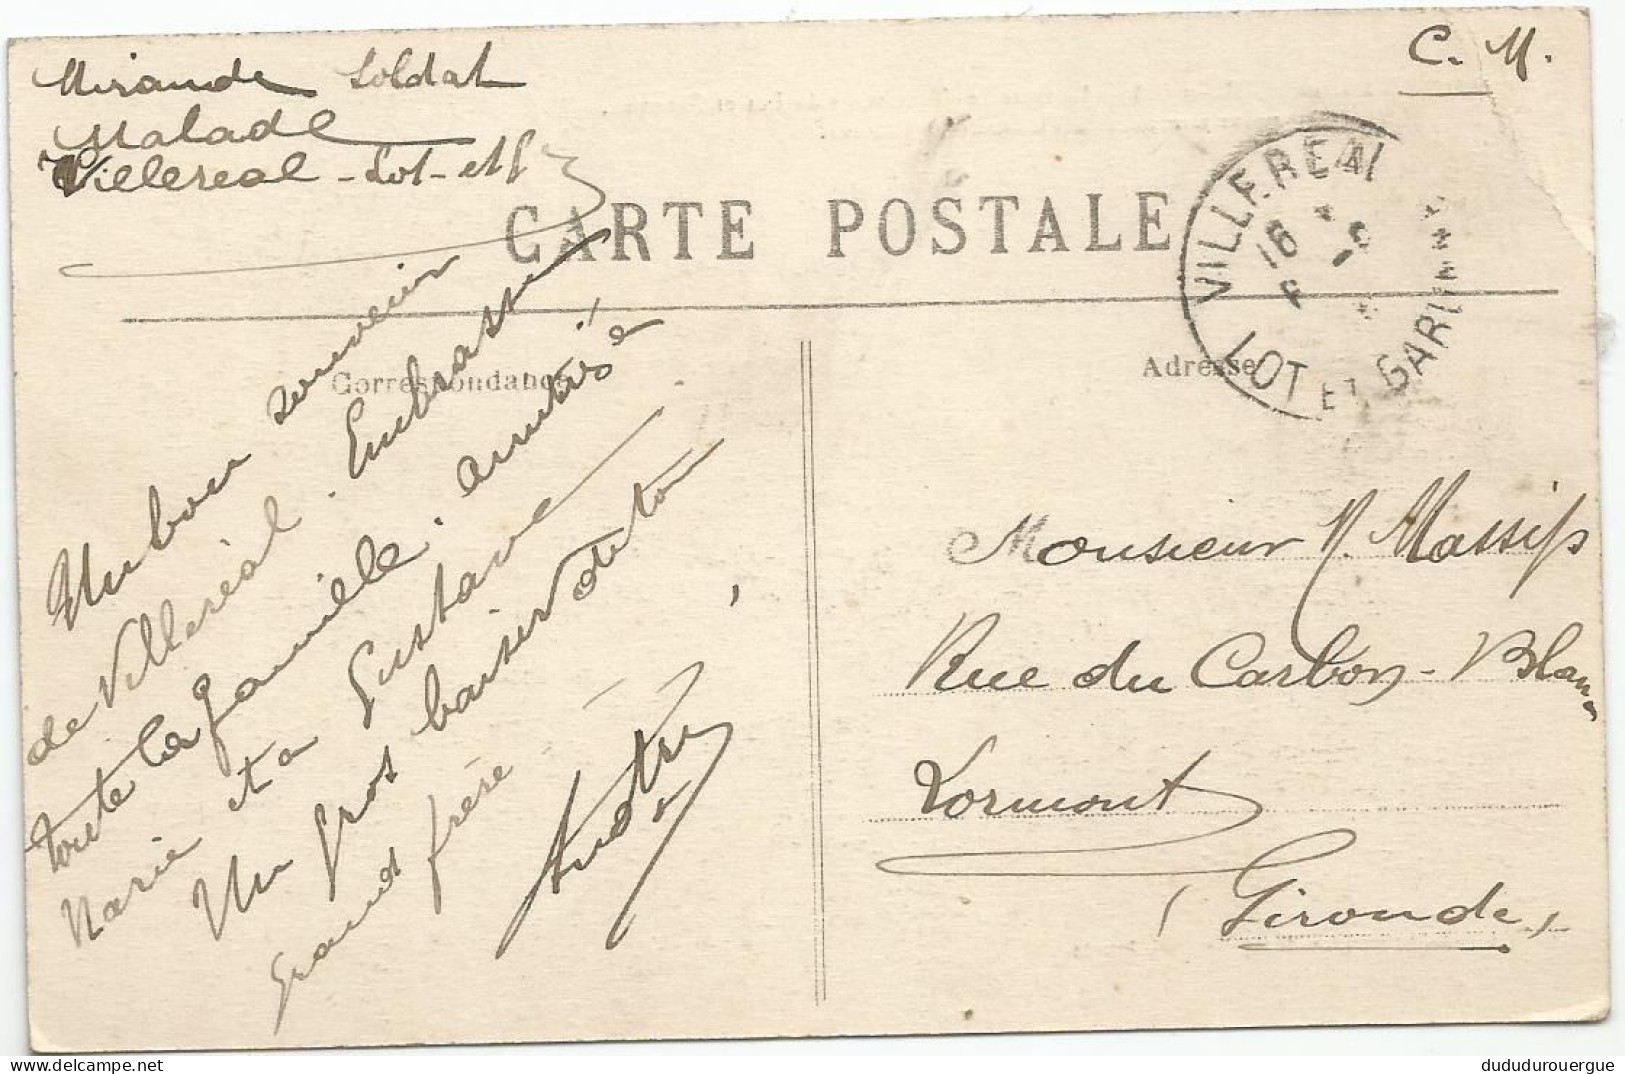 Mirande Soldat
Malade
Villereal - Lot-et-G
C. M.
CARTE POSTALE
VILLEREAL
16
LOT ET GARONNE
Correspondance
Adresse
Un bon souvenir
de Villeréal. Embrasse
toute la famille. amitiés à
Marie et a Gustave
Un gros baiser de ton
grand frère
André
Monsieur N. Massip
Rue du Carbon-Blanc
Lormont
(Gironde)
dududurouergue